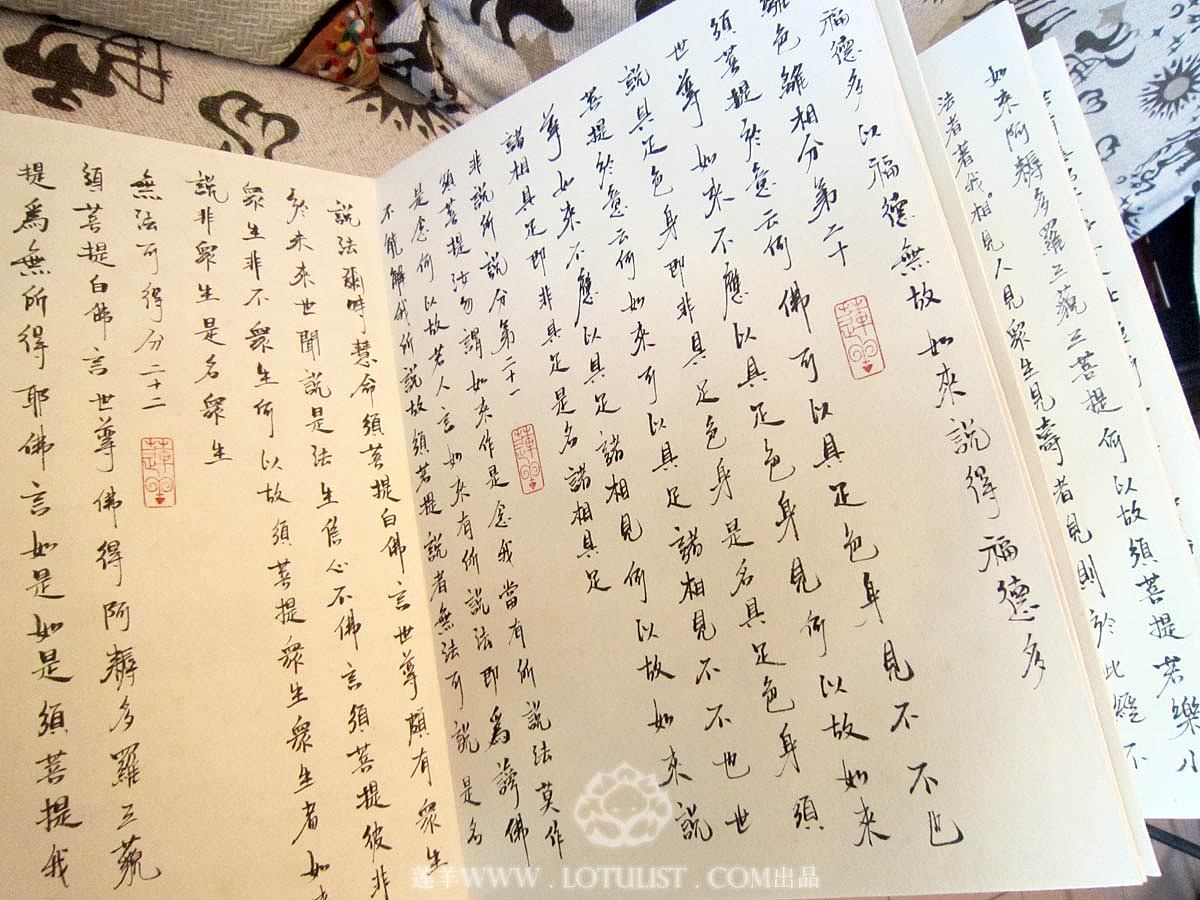 如來阿耨多羅三藐三菩提何以故須菩提若樂小
法者著我相見人見衆生見壽者見則於此經不
福德多以福德無故如來說得福德多
離色離相分第二十
須菩提於意云何佛可以具足色身見不不也
世尊如來不應以具足色身見何以故如來
說具足色身即非具足色身是名具足色身須
菩提於意云何如來可以具足諸相見不不也世
尊如來不應以具足諸相見何以故如來說
諸相具足即非具足是名諸相具足
非說所說分第二十一
須菩提汝勿謂如來作是念我當有所說法莫作
是念何以故若人言如來有所說法即為謗佛
不能解我所說故須菩提說者無法可說是名
說法爾時慧命須菩提白佛言世尊頗有衆生
於來世聞說是法生信心不佛言須菩提彼非
衆生非不衆生何以故須菩提衆生衆生者如
說非衆生是名衆生
無法可得分二十二
須菩提白佛言世尊佛得阿耨多羅三藐
提爲無所得耶佛言如是如是須菩提我
莲羊WWW.LOTULIST.COM出品